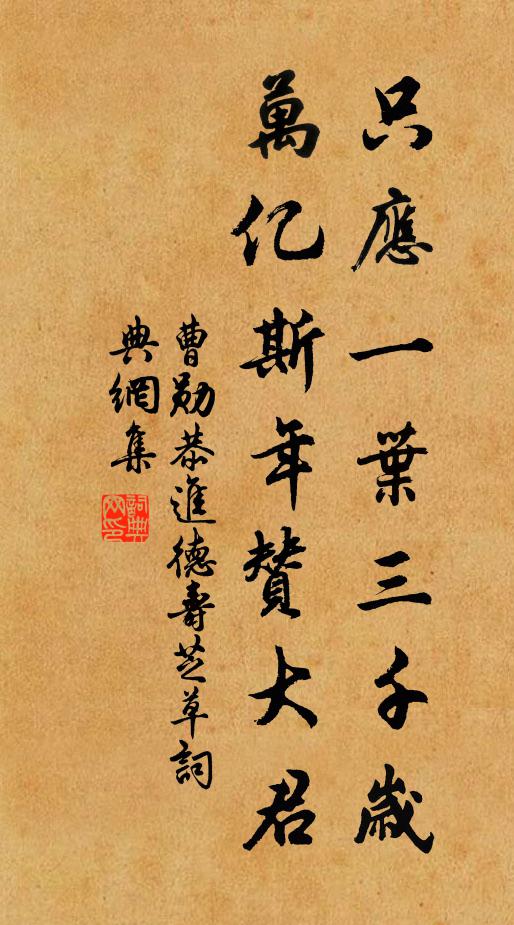 只應一葉三千歲
萬亿斯年贊大君
曹勋恭進德壽芝草詞
典網集
詞典
网印